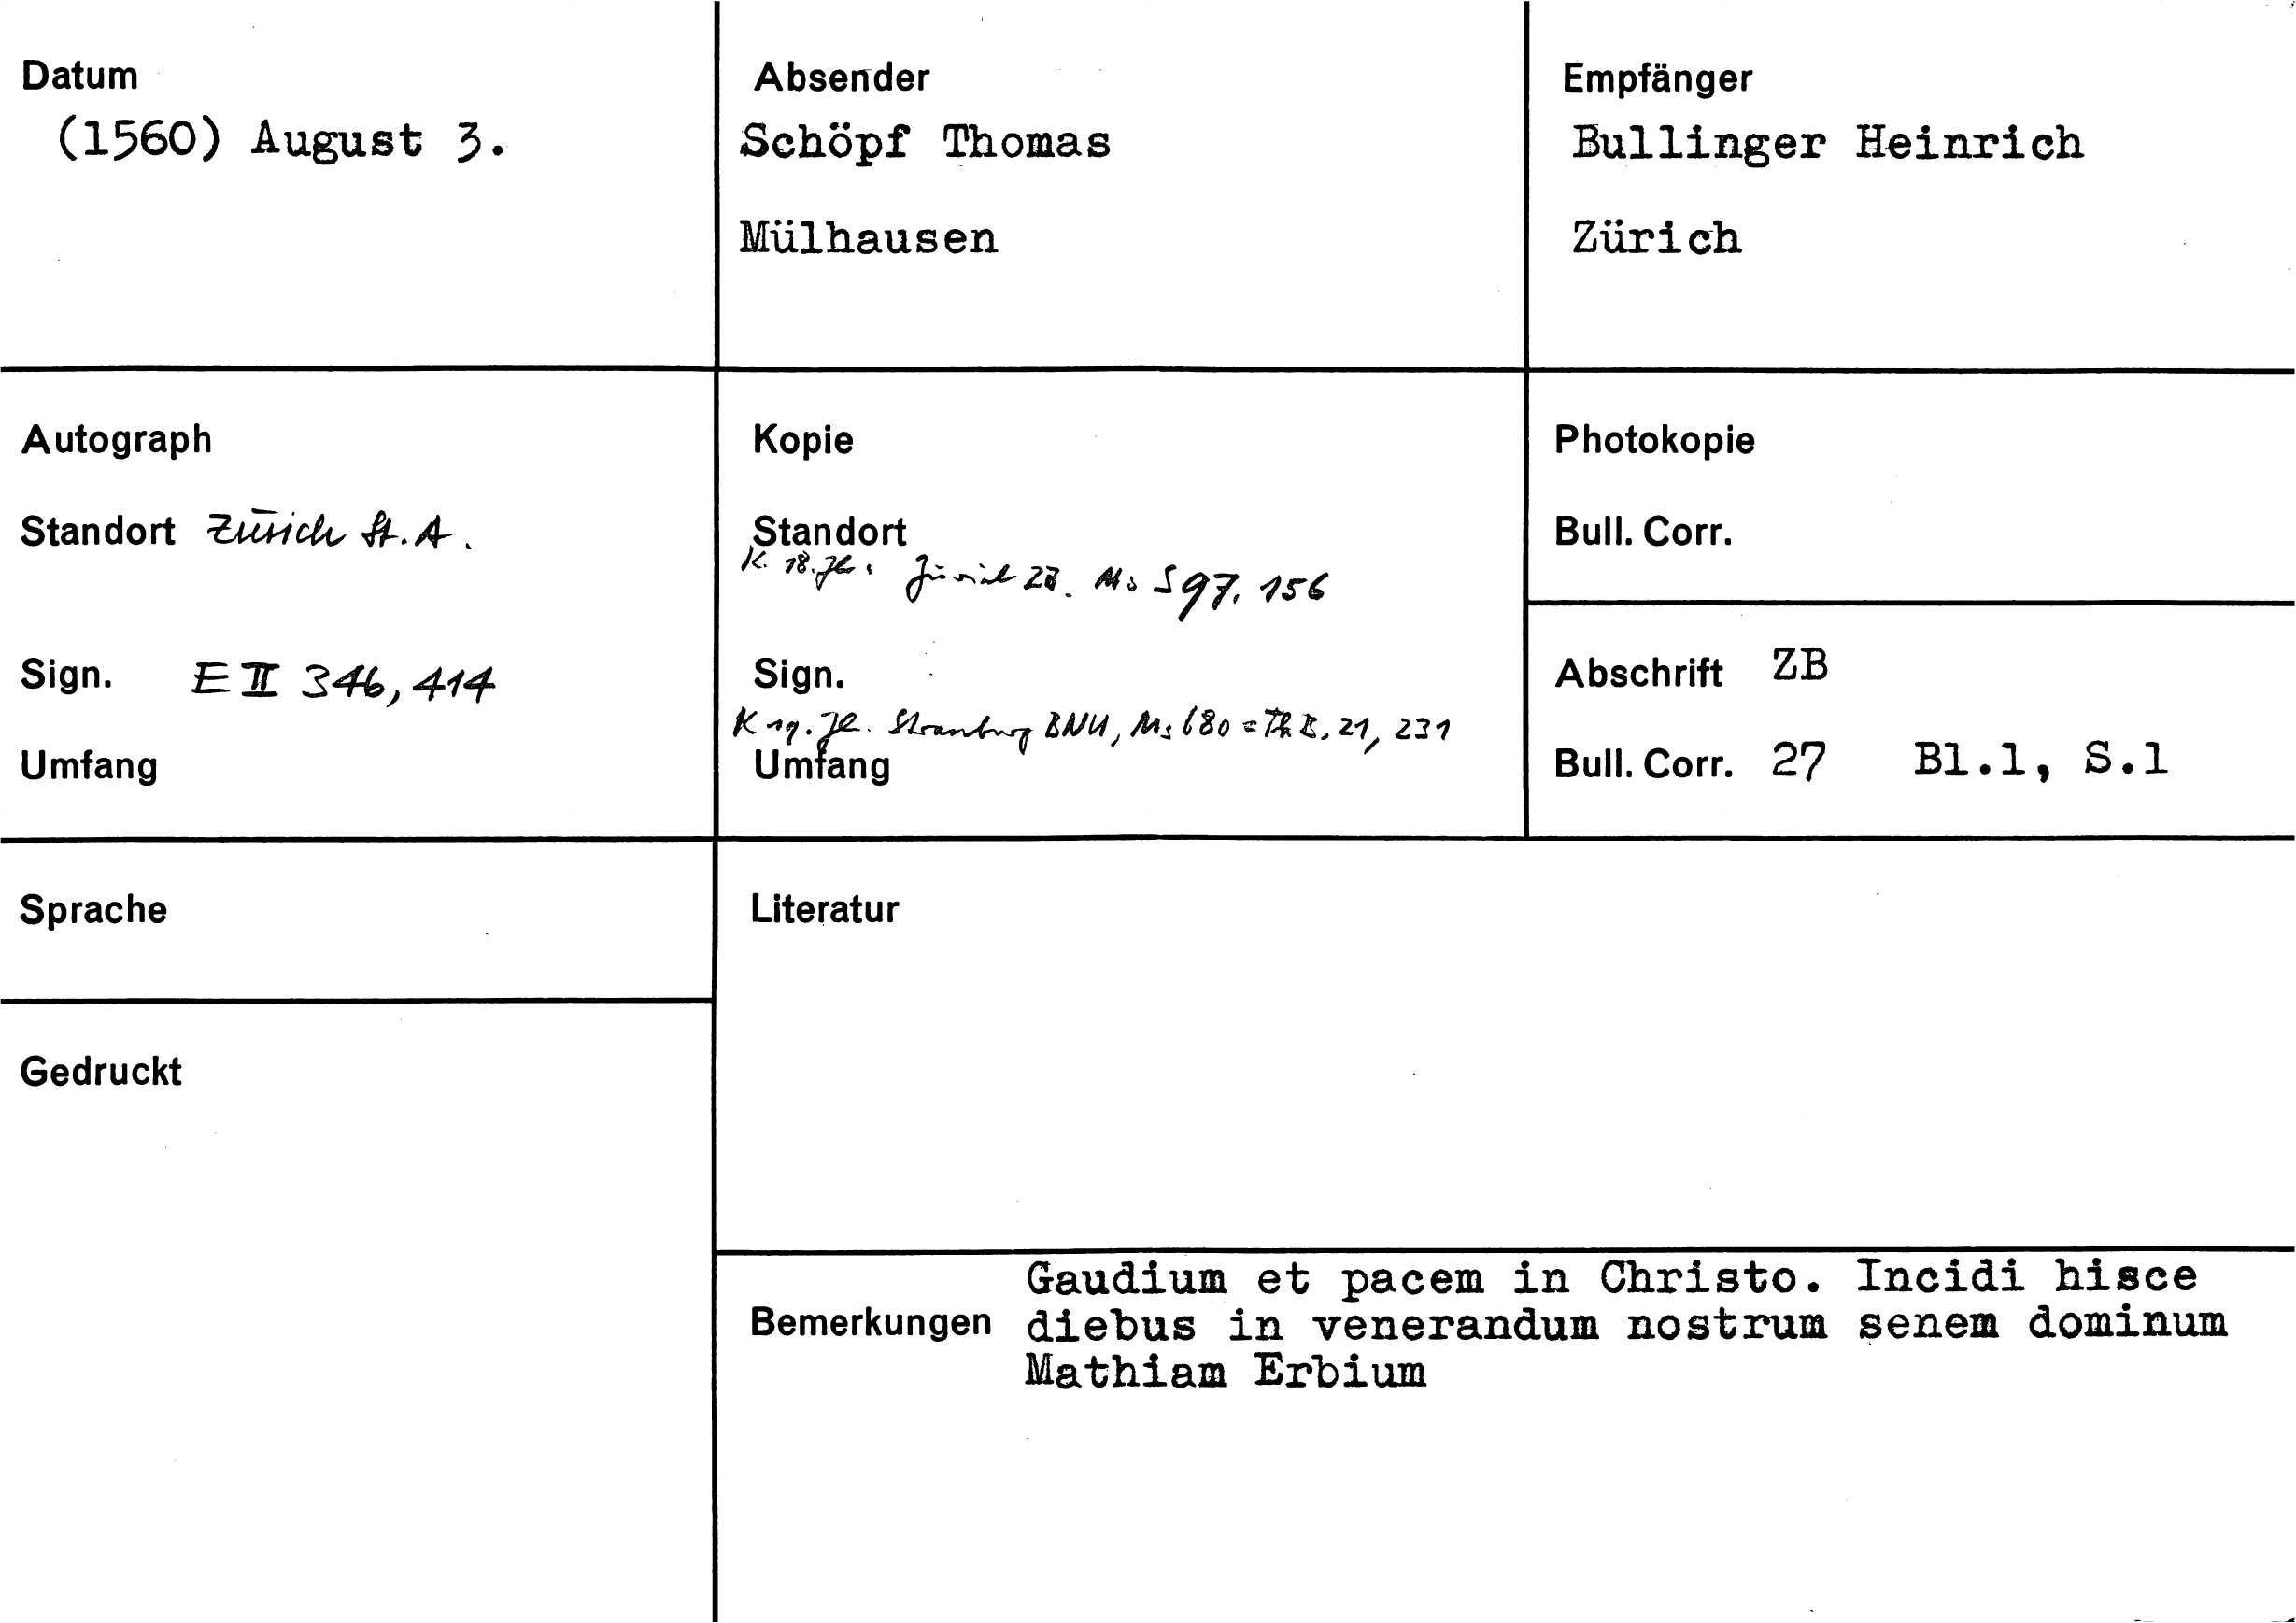 Datum
(1560) August 3.
Absender
Schöpf Thomas
Mülhausen
Empfänger
Bullinger Heinrich
Zürich
Autograph
Standort Zürich St.A.
Sign. E II 346, 414
Umfang
Kopie
Standort
K. 18. Jh. Zürich ZB. Ms S 97, 156
Sign.
K 19. Jh. Strassburg BNU, Ms 680 = ThB. 21, 231
Umfang
Photokopie
Bull. Corr.
Abschrift ZB
Bull. Corr. 27 Bl.1, S.1
Sprache
Gedruckt
Literatur
Bemerkungen
Gaudium et pacem in Christo. Incidi hisce
diebus in venerandum nostrum senem dominum
Mathiam Erbium